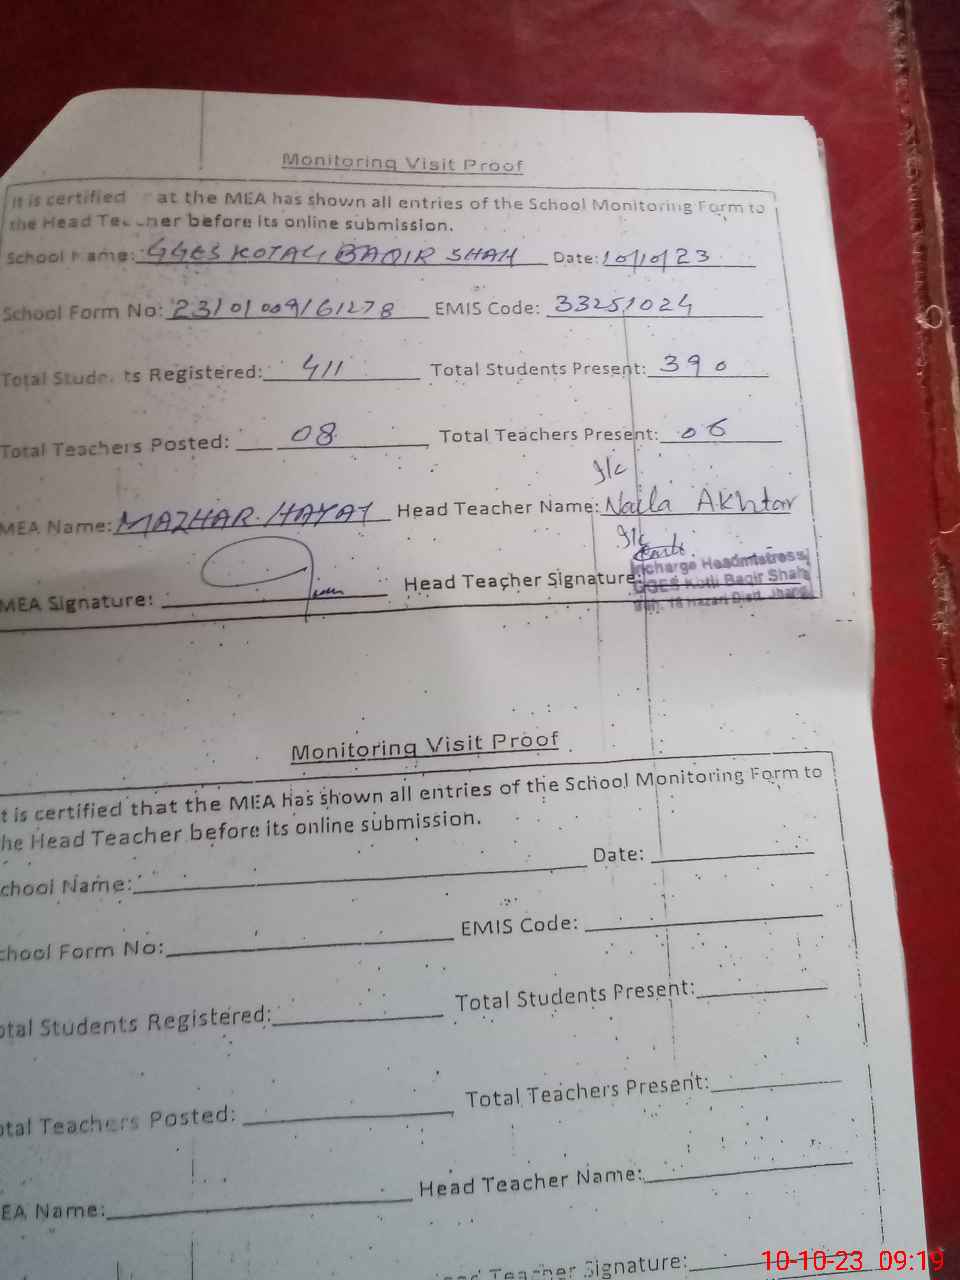 Monitoring Visit Proof
It is certified at the MEA has shown all entries of the School Monitoring Form to
the Head Teacher before its online submission.
School Name: GGES KOTALI BAQIR SHAH Date: 10/10/23
School Form No: 23/01009/61278 EMIS Code: 33251024
Total Students Registered: 411 Total Students Present: 390
Total Teachers Posted: 08 Total Teachers Present: 06
I/c
MEA Name: MAZHAR HAYAT Head Teacher Name: Naila Akhtar
I/c
MEA Signature: Head Teacher Signature:
Incharge Headmistress
GGES Kotli Baqir Shah
18 Hazari Distt. Jhang
Monitoring Visit Proof
t is certified that the MEA has shown all entries of the School Monitoring Form to
he Head Teacher before its online submission.
chool Name: Date:
chool Form No: EMIS Code:
otal Students Registered: Total Students Present:
otal Teachers Posted: Total Teachers Present:
EA Name: Head Teacher Name:
Teacher Signature:
10-10-23 09:19